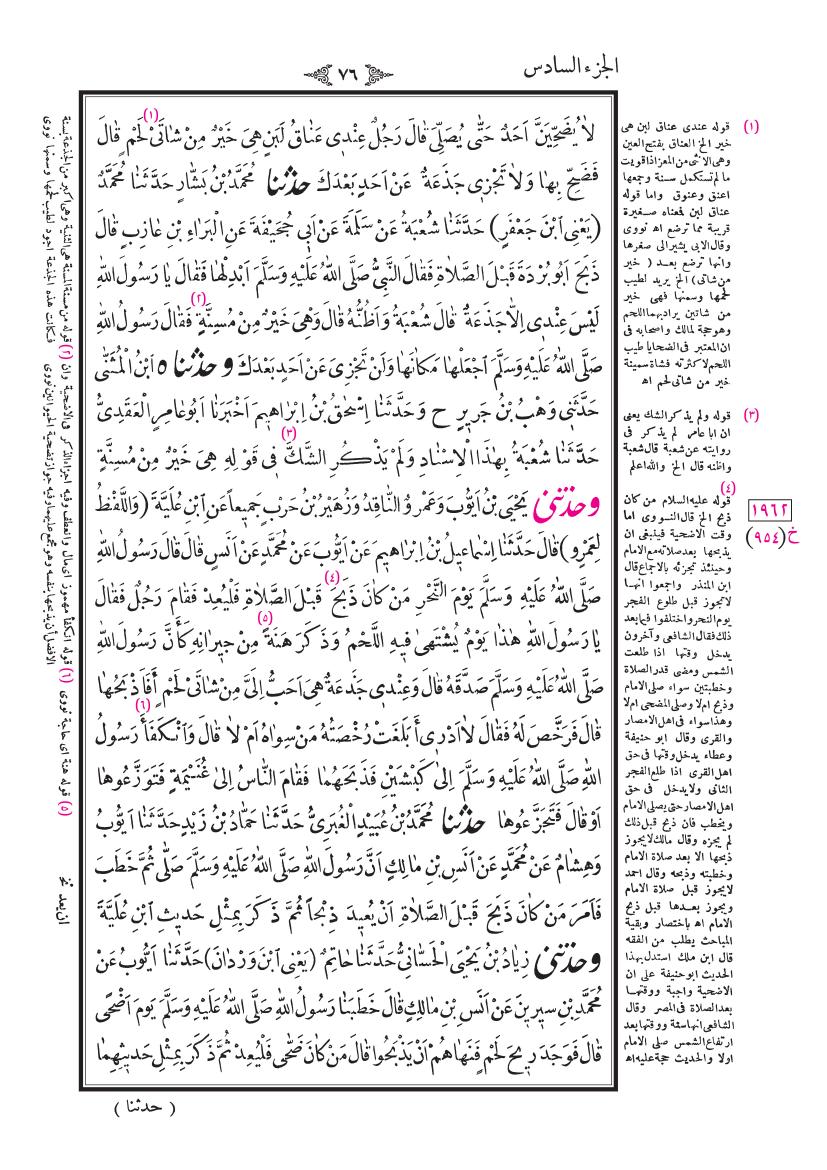 الجزء السادس
٧٦
لَا يُضَحِّيَنَّ اَحَدٌ حَتّٰى يُصَلِّىَ قَالَ رَجُلٌ عِنْدِى عَنَاقُ لَبَنٍ هِىَ خَيْرٌ مِنْ شَاتَىْ لَحْمٍ (١) قَالَ
فَضَحِّ بِهَا وَلَا تَجْزِى جَذَعَةٌ عَنْ اَحَدٍ بَعْدَكَ حَدَّثَنَا مُحَمَّدُ بْنُ بَشَّارٍ حَدَّثَنَا مُحَمَّدٌ
(يَعْنِى ابْنَ جَعْفَرٍ) حَدَّثَنَا شُعْبَةُ عَنْ سَلَمَةَ عَنْ اَبِى جُحَيْفَةَ عَنِ الْبَرَاءِ بْنِ عَازِبٍ قَالَ
ذَبَحَ اَبُو بُرْدَةَ قَبْلَ الصَّلَاةِ فَقَالَ النَّبِىُّ صَلَّى اللهُ عَلَيْهِ وَسَلَّمَ اَبْدِلْهَا فَقَالَ يَا رَسُولَ اللهِ
لَيْسَ عِنْدِى اِلَّا جَذَعَةٌ قَالَ شُعْبَةُ وَاَظُنُّهُ قَالَ وَهِىَ خَيْرٌ مِنْ مُسِنَّةٍ (٢) فَقَالَ رَسُولُ اللهِ
صَلَّى اللهُ عَلَيْهِ وَسَلَّمَ اجْعَلْهَا مَكَانَهَا وَلَنْ تَجْزِىَ عَنْ اَحَدٍ بَعْدَكَ وَحَدَّثَنَا ه ابْنُ الْمُثَنّٰى
حَدَّثَنِى وَهْبُ بْنُ جَرِيرٍ ح وَحَدَّثَنَا اِسْحٰقُ بْنُ اِبْرَاهِيمَ اَخْبَرَنَا اَبُو عَامِرٍ الْعَقَدِىُّ
حَدَّثَنَا شُعْبَةُ بِهٰذَا الْاِسْنَادِ وَلَمْ يَذْكُرِ الشَّكَّ (٣) فِى قَوْلِهِ هِىَ خَيْرٌ مِنْ مُسِنَّةٍ
وَحَدَّثَنِى يَحْيَى بْنُ اَيُّوبَ وَعَمْرٌو النَّاقِدُ وَزُهَيْرُ بْنُ حَرْبٍ جَمِيعًا عَنِ ابْنِ عُلَيَّةَ (وَاللَّفْظُ
لِعَمْرٍو) قَالَ حَدَّثَنَا اِسْمَاعِيلُ بْنُ اِبْرَاهِيمَ عَنْ اَيُّوبَ عَنْ مُحَمَّدٍ عَنْ اَنَسٍ قَالَ قَالَ رَسُولُ اللهِ
صَلَّى اللهُ عَلَيْهِ وَسَلَّمَ يَوْمَ النَّحْرِ مَنْ كَانَ ذَبَحَ (٤) قَبْلَ الصَّلَاةِ فَلْيُعِدْ فَقَامَ رَجُلٌ فَقَالَ
يَا رَسُولَ اللهِ هٰذَا يَوْمٌ يُشْتَهٰى فِيهِ اللَّحْمُ وَذَكَرَ هَنَةً (٥) مِنْ جِيرَانِهِ كَأَنَّ رَسُولَ اللهِ
صَلَّى اللهُ عَلَيْهِ وَسَلَّمَ صَدَّقَهُ قَالَ وَعِنْدِى جَذَعَةٌ هِىَ اَحَبُّ اِلَىَّ مِنْ شَاتَىْ لَحْمٍ أَفَأَذْبَحُهَا
قَالَ فَرَخَّصَ لَهُ فَقَالَ لَا اَدْرِى أَبَلَغَتْ رُخْصَتُهُ مَنْ سِوَاهُ اَمْ لَا قَالَ وَانْكَفَأَ (٦) رَسُولُ
اللهِ صَلَّى اللهُ عَلَيْهِ وَسَلَّمَ اِلٰى كَبْشَيْنِ فَذَبَحَهُمَا فَقَامَ النَّاسُ اِلٰى غُنَيْمَةٍ فَتَوَزَّعُوهَا
اَوْ قَالَ فَتَجَزَّعُوهَا حَدَّثَنَا مُحَمَّدُ بْنُ عُبَيْدٍ الْغُبَرِىُّ حَدَّثَنَا حَمَّادُ بْنُ زَيْدٍ حَدَّثَنَا اَيُّوبُ
وَهِشَامٌ عَنْ مُحَمَّدٍ عَنْ اَنَسِ بْنِ مَالِكٍ اَنَّ رَسُولَ اللهِ صَلَّى اللهُ عَلَيْهِ وَسَلَّمَ صَلَّى ثُمَّ خَطَبَ
فَاَمَرَ مَنْ كَانَ ذَبَحَ قَبْلَ الصَّلَاةِ اَنْ يُعِيدَ ذِبْحًا ثُمَّ ذَكَرَ بِمِثْلِ حَدِيثِ ابْنِ عُلَيَّةَ
وَحَدَّثَنِى زِيَادُ بْنُ يَحْيَى الْحَسَّانِىُّ حَدَّثَنَا حَاتِمٌ (يَعْنِى ابْنَ وَرْدَانَ) حَدَّثَنَا اَيُّوبُ عَنْ
مُحَمَّدِ بْنِ سِيرِينَ عَنْ اَنَسِ بْنِ مَالِكٍ قَالَ خَطَبَنَا رَسُولُ اللهِ صَلَّى اللهُ عَلَيْهِ وَسَلَّمَ يَوْمَ اَضْحًى
قَالَ فَوَجَدَ رِيحَ لَحْمٍ فَنَهَاهُمْ اَنْ يَذْبَحُوا قَالَ مَنْ كَانَ ضَحَّى فَلْيُعِدْ ثُمَّ ذَكَرَ بِمِثْلِ حَدِيثِهِمَا
( حدثنا )
(١) قوله عندى عناق لبن هى
خير الخ العناق بفتح العين
وهى الانثى من المعز اذا قويت
ما لم تستكمل سنة وجمعها
اعنق وعنوق واما قوله
عناق لبن فمعناه صغيرة
قريبة مما ترضع اه نووى
وقال الابى يشير الى صغرها
وانها ترضع بعد ( خير
من شاتى ) الخ يريد لطيب
لحمها وسمنها فهى خير
من شاتين يراد بهما اللحم
وهو حجة لمالك واصحابه فى
ان المعتبر فى الضحايا طيب
اللحم لا كثرته فشاة سمينة
خير من شاتى لحم اه
(٣) قوله ولم يذكر الشك يعنى
ان ابا عامر لم يذكر فى
روايته عن شعبة قال شعبة
واظنه قال الخ والله اعلم
(٤) قوله عليه السلام من كان
ذبح الخ قال النووى اما
وقت الاضحية فينبغى ان
يذبحها بعد صلاته مع الامام
وحينئذ تجزئه بالاجماع قال
ابن المنذر واجمعوا انها
لاتجوز قبل طلوع الفجر
يوم النحر واختلفوا فيما بعد
ذلك فقال الشافعى وآخرون
يدخل وقتها اذا طلعت
الشمس ومضى قدر الصلاة
وخطبتين سواء صلى الامام
وذبح ام لا وصلى المضحى ام لا
وهذا سواء فى اهل الامصار
والقرى وقال ابو حنيفة
وعطاء يدخل وقتها فى حق
اهل القرى اذا طلع الفجر
الثانى ولا يدخل فى حق
اهل الامصار حتى يصلى الامام
ويخطب فان ذبح قبل ذلك
لم يجزه وقال مالك لايجوز
ذبحها الا بعد صلاة الامام
وخطبته وذبحه وقال احمد
لايجوز قبل صلاة الامام
ويجوز بعدها قبل ذبح
الامام اه باختصار وبقية
المباحث يطلب من الفقه
قال ابن ملك استدل بهذا
الحديث ابو حنيفة على ان
الاضحية واجبة ووقتها
بعد الصلاة فى المصر وقال
الشافعى انها سنة ووقتها بعد
ارتفاع الشمس صلى الامام
اولا والحديث حجة عليه اه
١٩٦٢
خ (٩٥٤)
(٢) قوله من مسنة المسنة هى الثنية وهى اكبر من الجذعة بسنة
فكانت هذه الجذعة اجود لطيب لحمها وسمنها نووى
(٥) قوله هنة اى حاجة نووى (٦) قوله انكفأ مهموز اى مال وانعطف وفيه اجزاء الذكر فى الاضحية وان
الافضل أن يذبحها بنفسه وهو مجمع عليهما وفيه جواز تضحية الحيوانين نووى
ان يعد نخ